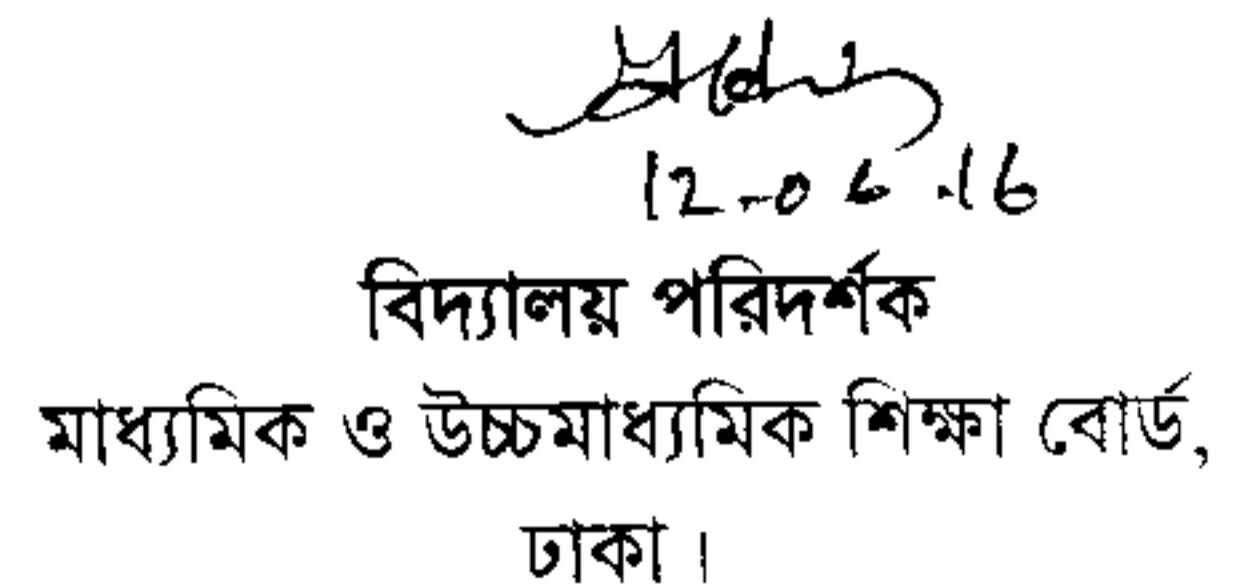 12-06-16
বিদ্যালয় পরিদর্শক
মাধ্যমিক ও উচ্চমাধ্যমিক শিক্ষা বোর্ড,
ঢাকা।